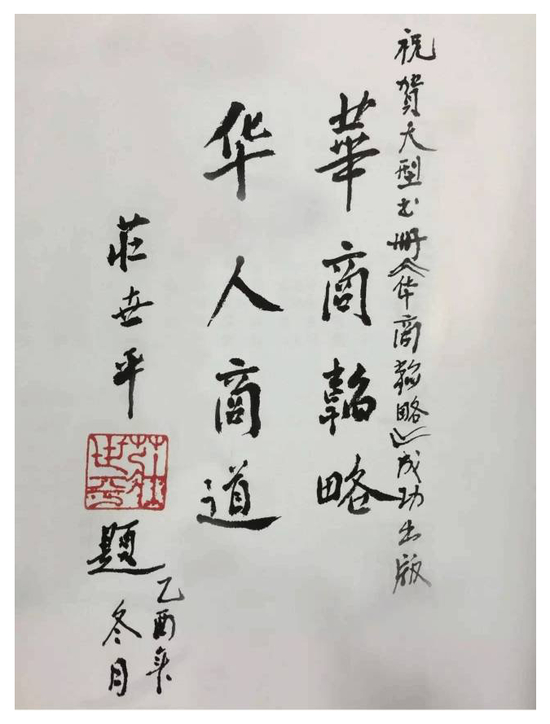 祝賀大型书册《华商韜略》成功出版
華商韜略
华人商道
莊世平
莊世平
題
乙酉年
冬月